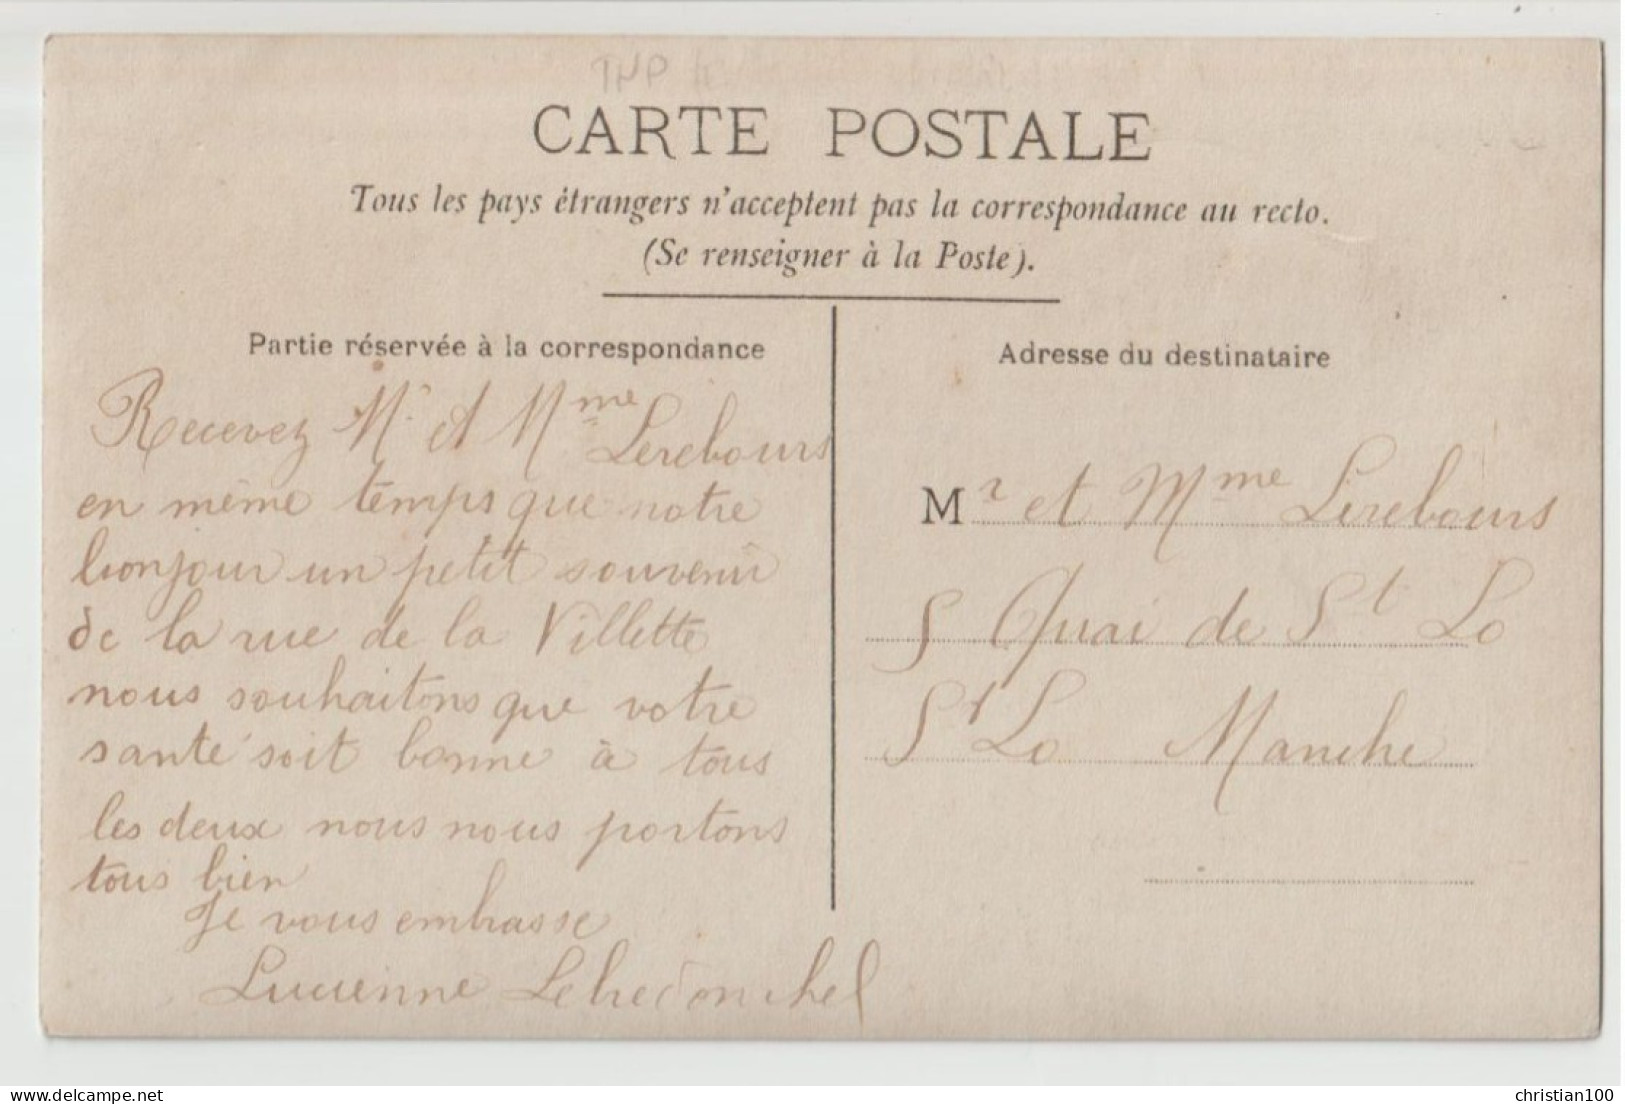 CARTE POSTALE
Tous les pays étrangers n'acceptent pas la correspondance au recto.
(Se renseigner à la Poste).
Partie réservée à la correspondance
Recevez Mr et Mme Lerebours
en même temps que notre
bonjour un petit souvenir
de la rue de la Villette
nous souhaitons que votre
santé soit bonne à tous
les deux nous nous portons
tous bien
Je vous embrasse
Lucienne
Adresse du destinataire
Mr et Mme Lerebours
5 Quai de St Lo
St Lo Manche
www.delcampe.net
christian100